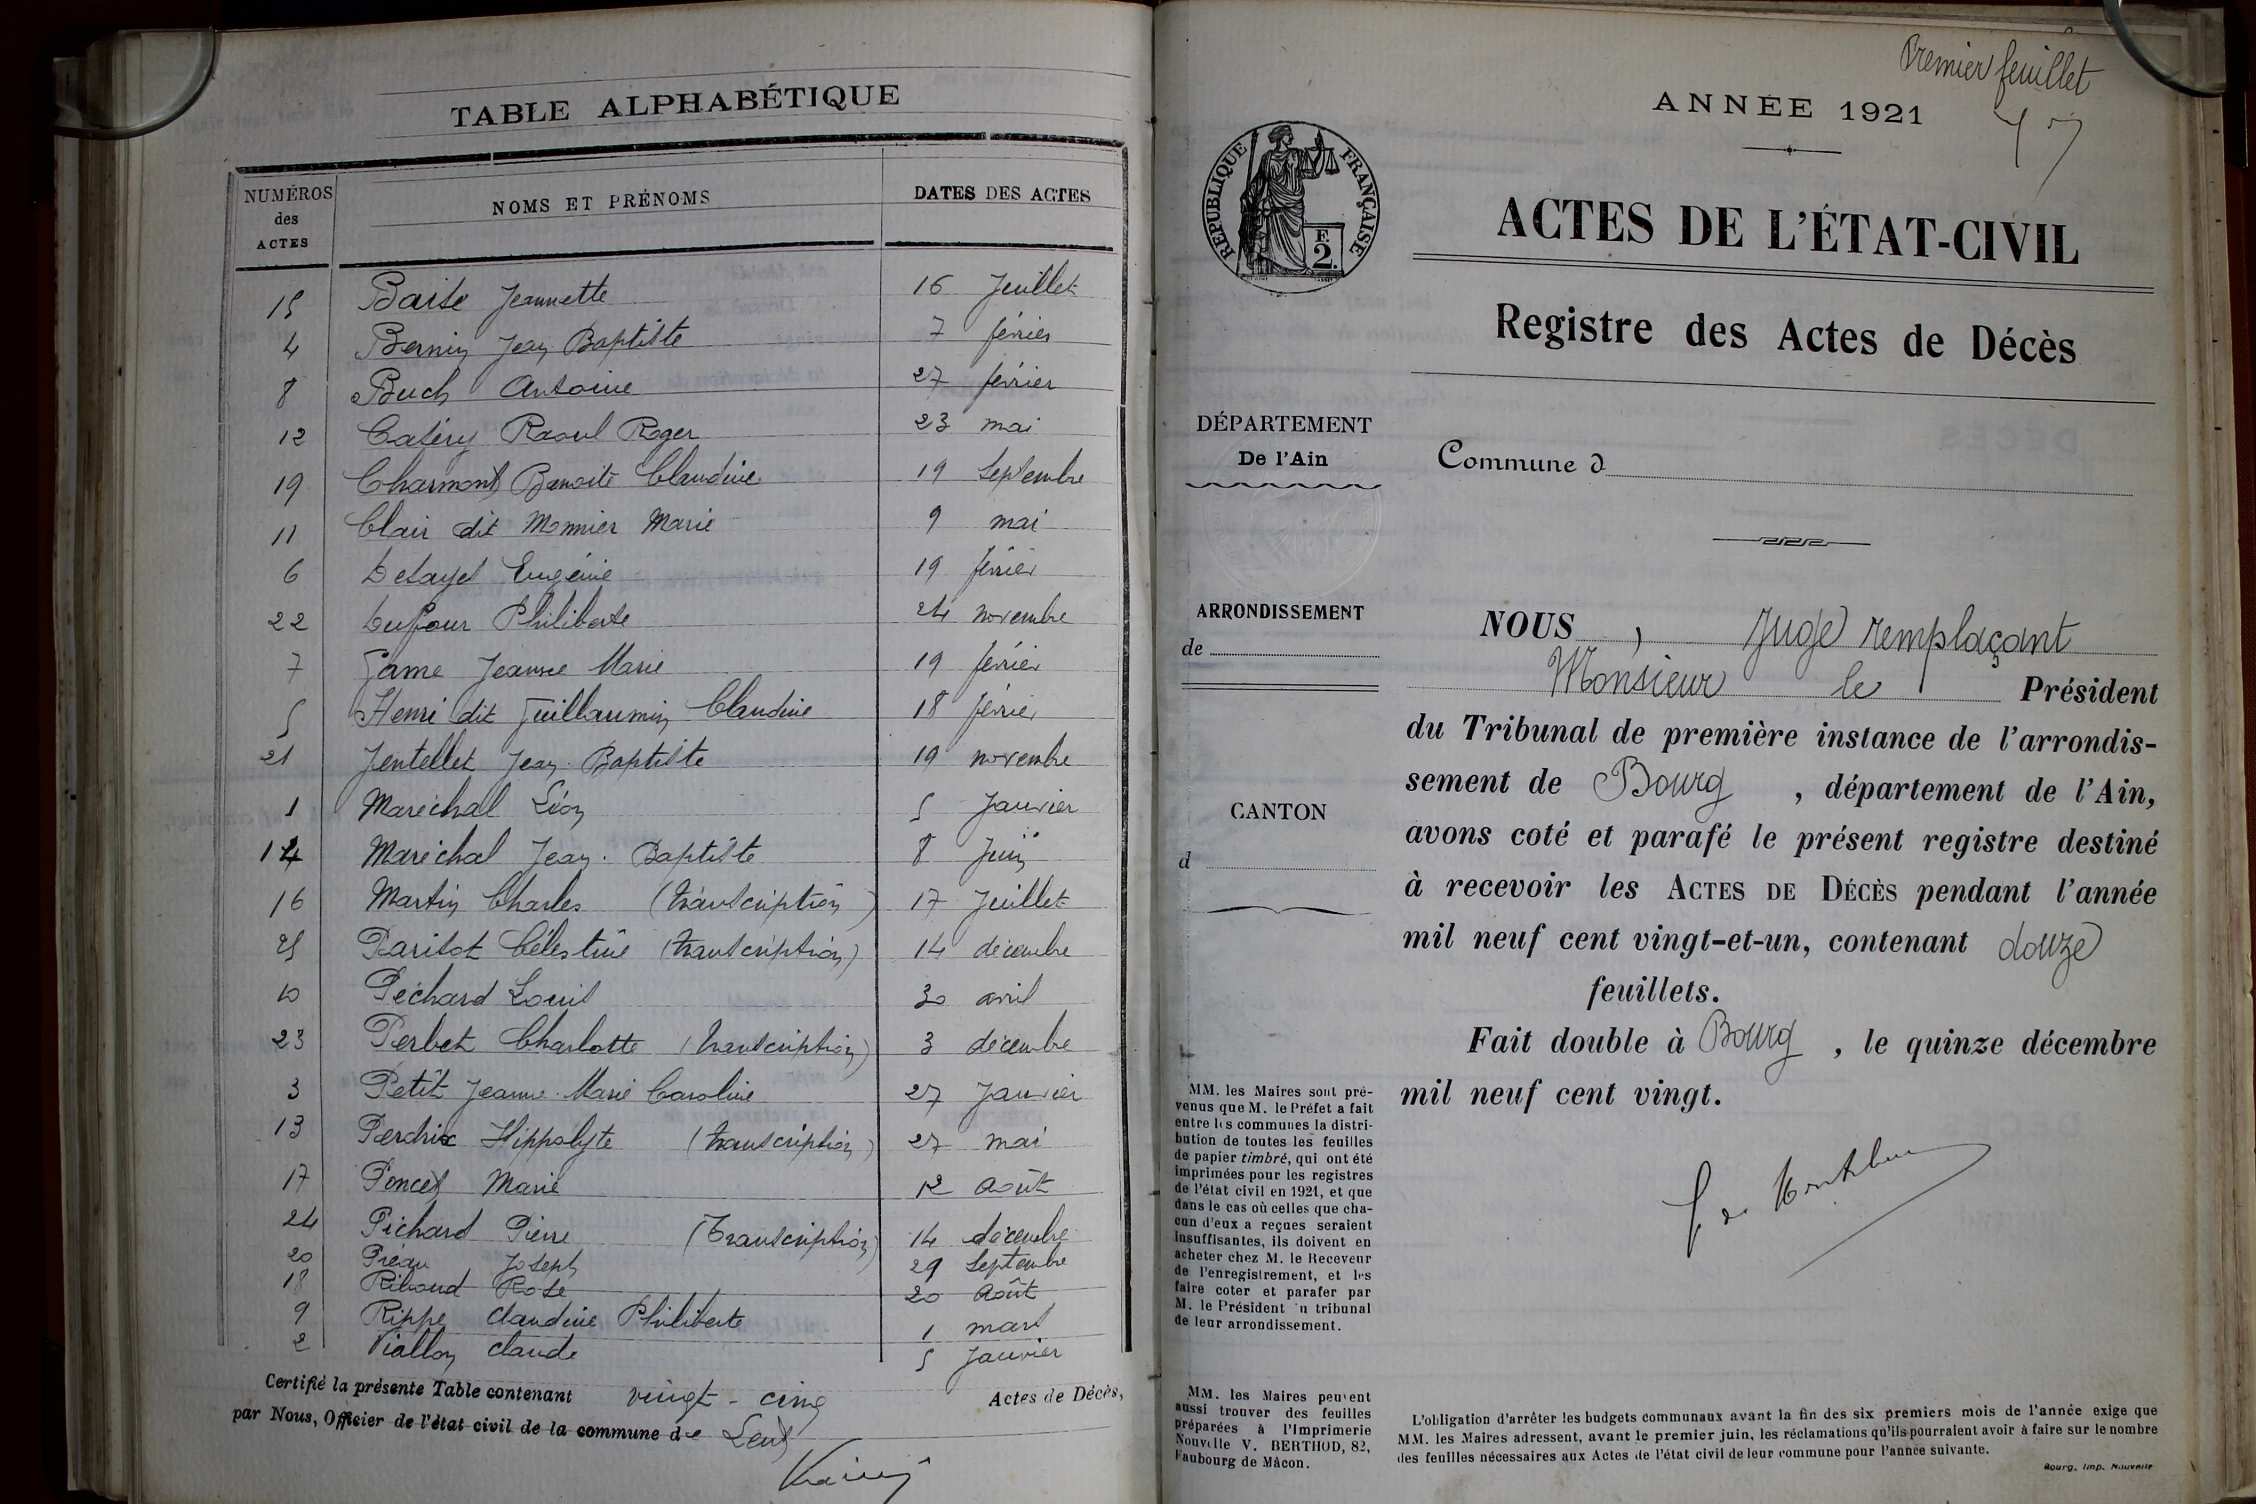 TABLE ALPHABÉTIQUE
NUMÉROS des ACTES NOMS ET PRÉNOMS DATES DES ACTES
15 Baise Jeannette 16 Juillet
4 Bernin Jean Baptiste 7 février
8 Buch Antoine 27 février
12 Catéry Raoul Roger 23 mai
19 Charmont Benoite Claudine 19 Septembre
11 Clair dit Monnier Marie 9 mai
6 Eugénie 19 février
22 Dufour Philiberte 24 novembre
7 Game Jeanne Marie 19 février
5 Henri dit Guillaumin Claudine 18 février
21 Jentellet Jean Baptiste 19 novembre
1 Maréchal Léon 5 Janvier
14 Maréchal Jean-Baptiste 8 Juin
16 Martin Charles (transcription) 17 Juillet
25 Parisot Célestine (transcription) 14 décembre
10 Péchard Louis 30 avril
23 Perbet Charlotte (transcription) 3 décembre
3 Petit Jeanne-Marie Caroline 27 Janvier
13 Perdrix Hippolyte (transcription) 27 mai
17 Poncet Marie 12 Août
24 Pichard Pierre (Transcription) 14 décembre
20 Préau Joseph 29 Septembre
18 Riboud Rose 20 Août
9 Rippe Claudine Philiberte 1 mars
2 Viallon Claude 5 Janvier
Certifié la présente Table contenant vingt-cinq Actes de Décès,
par Nous, Officier de l'état civil de la commune de
Premier feuillet
ANNÉE 1921
RÉPUBLIQUE FRANÇAISE
F.
2.
ACTES DE L'ÉTAT-CIVIL
Registre des Actes de Décès
DÉPARTEMENT
De l'Ain
Commune d
ARRONDISSEMENT
de
CANTON
d
NOUS, Juge remplaçant
Monsieur le Président
du Tribunal de première instance de l'arrondis-
sement de Bourg, département de l'Ain,
avons coté et parafé le présent registre destiné
à recevoir les ACTES DE DÉCÈS pendant l'année
mil neuf cent vingt-et-un, contenant douze
feuillets.
Fait double à Bourg, le quinze décembre
mil neuf cent vingt.
MM. les Maires sont pré-
venus que M. le Préfet a fait
entre les communes la distri-
bution de toutes les feuilles
de papier timbré, qui ont été
imprimées pour les registres
de l'état civil en 1921, et que
dans le cas où celles que cha-
cun d'eux a reçues seraient
insuffisantes, ils doivent en
acheter chez M. le Receveur
de l'enregistrement, et les
faire coter et parafer par
M. le Président du tribunal
de leur arrondissement.
MM. les Maires peuvent
aussi trouver des feuilles
préparées à l'Imprimerie
Nouvelle V. BERTHOD, 82,
Faubourg de Mâcon.
L'obligation d'arrêter les budgets communaux avant la fin des six premiers mois de l'année exige que
MM. les Maires adressent, avant le premier juin, les réclamations qu'ils pourraient avoir à faire sur le nombre
des feuilles nécessaires aux Actes de l'état civil de leur commune pour l'année suivante.
Bourg, Imp. Nouvelle